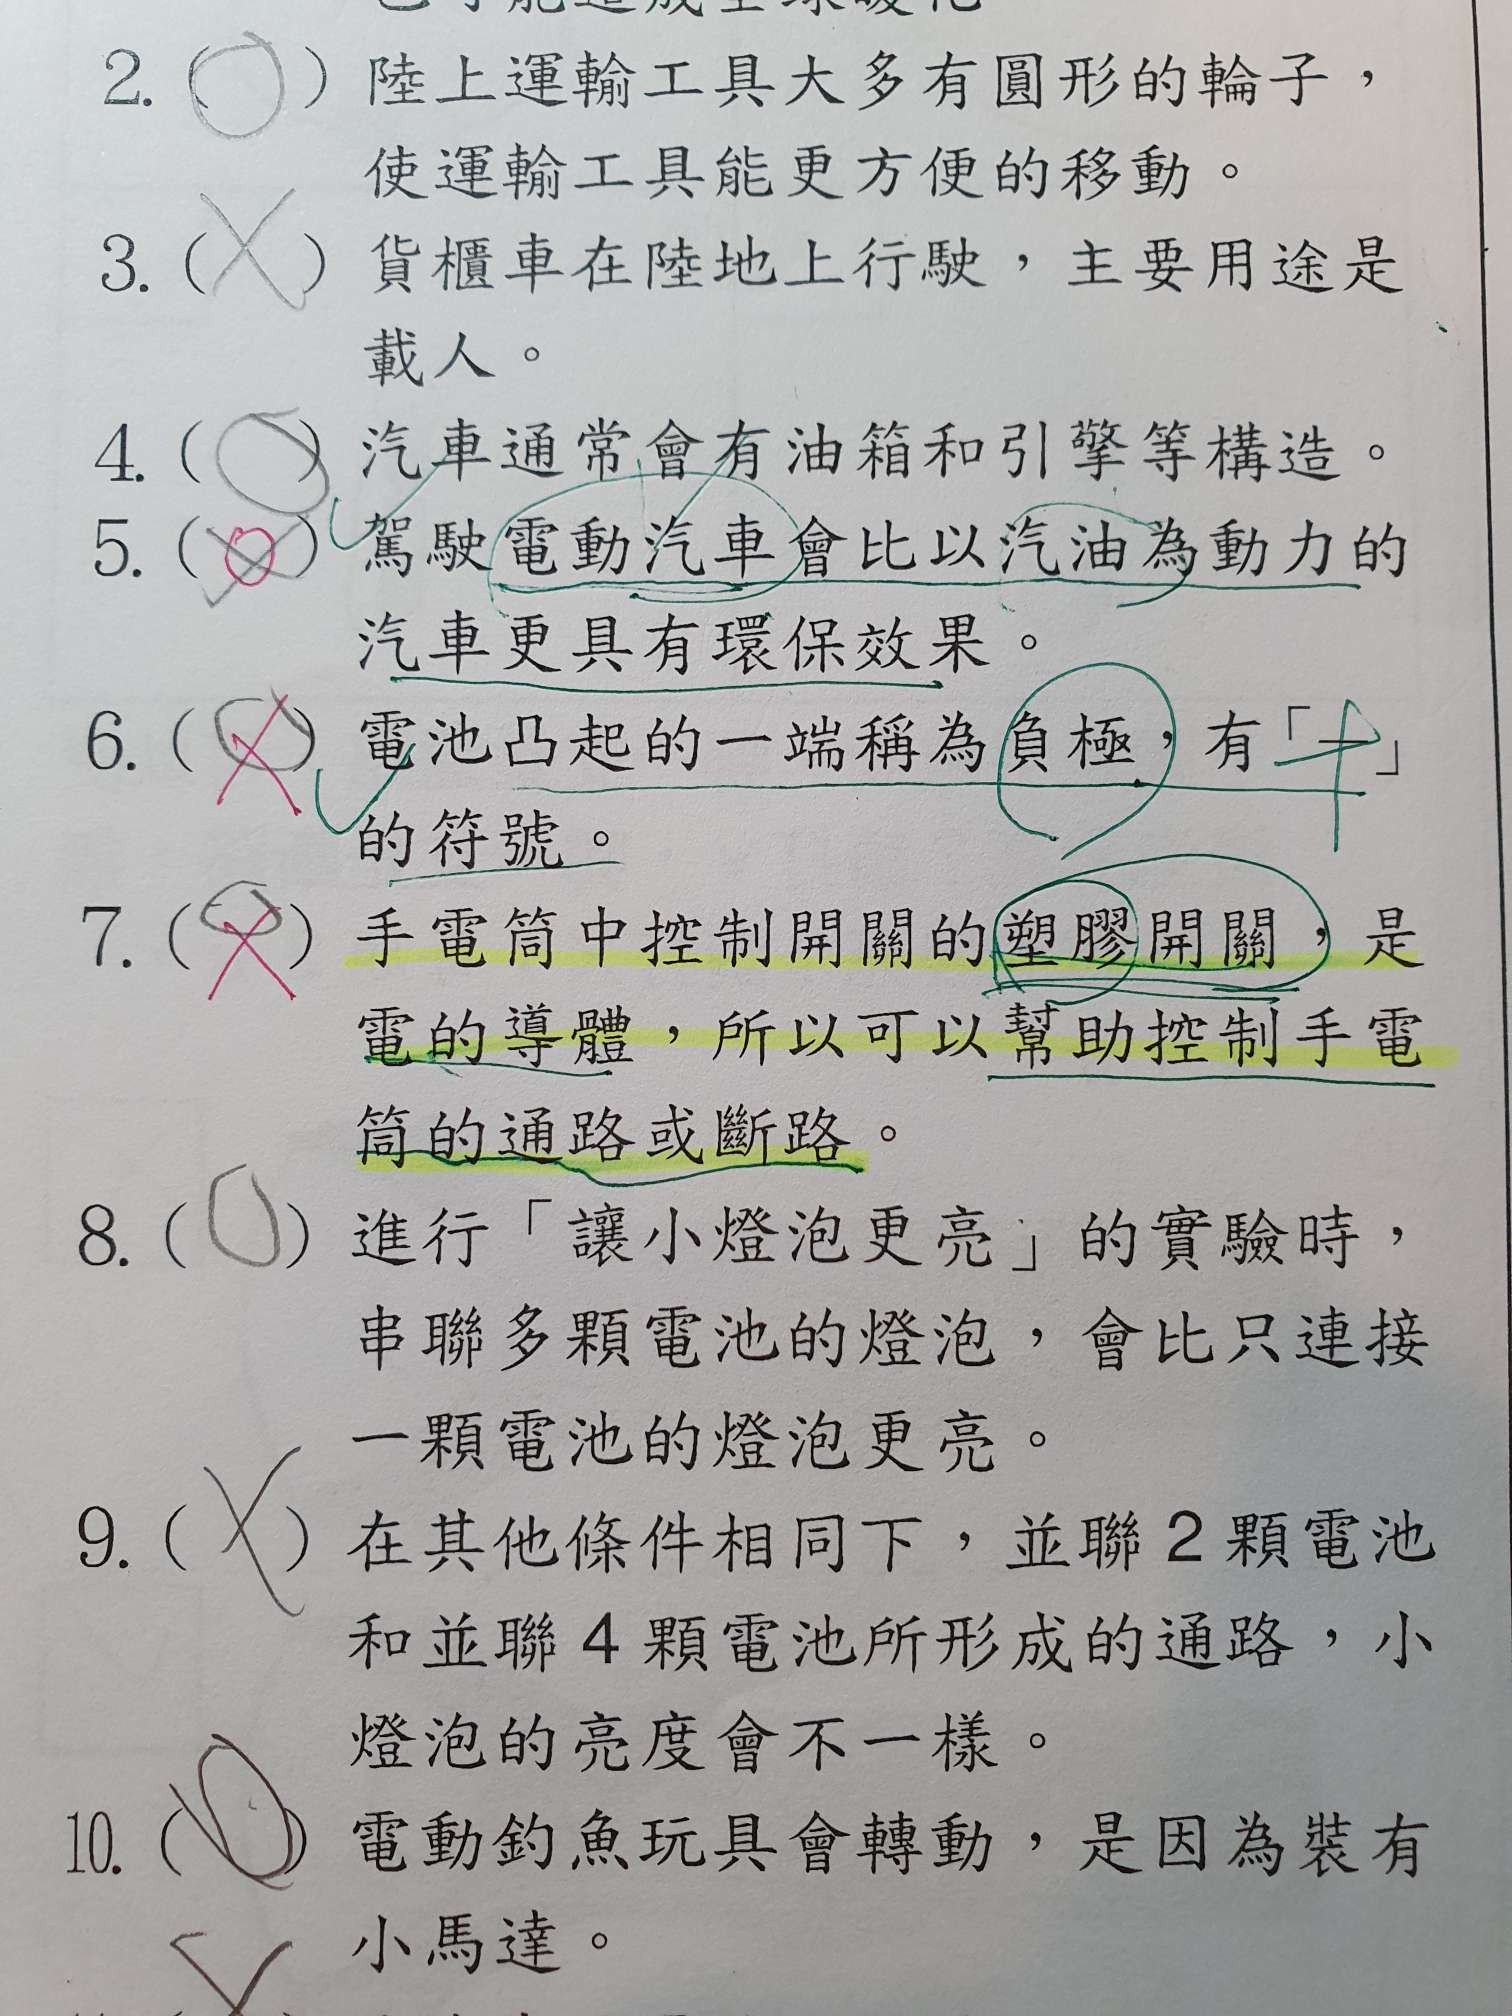 2. (○) 陸上運輸工具大多有圓形的輪子，
使運輸工具能更方便的移動。
3. (╳) 貨櫃車在陸地上行駛，主要用途是
載人。
4. (○) 汽車通常會有油箱和引擎等構造。
5. (○) 駕駛電動汽車會比以汽油為動力的
汽車更具有環保效果。
6. (╳) 電池凸起的一端稱為負極，有「＋」
的符號。
7. (╳) 手電筒中控制開關的塑膠開關，是
電的導體，所以可以幫助控制手電
筒的通路或斷路。
8. (○) 進行「讓小燈泡更亮」的實驗時，
串聯多顆電池的燈泡，會比只連接
一顆電池的燈泡更亮。
9. (╳) 在其他條件相同下，並聯2顆電池
和並聯4顆電池所形成的通路，小
燈泡的亮度會不一樣。
10. (○) 電動釣魚玩具會轉動，是因為裝有
小馬達。